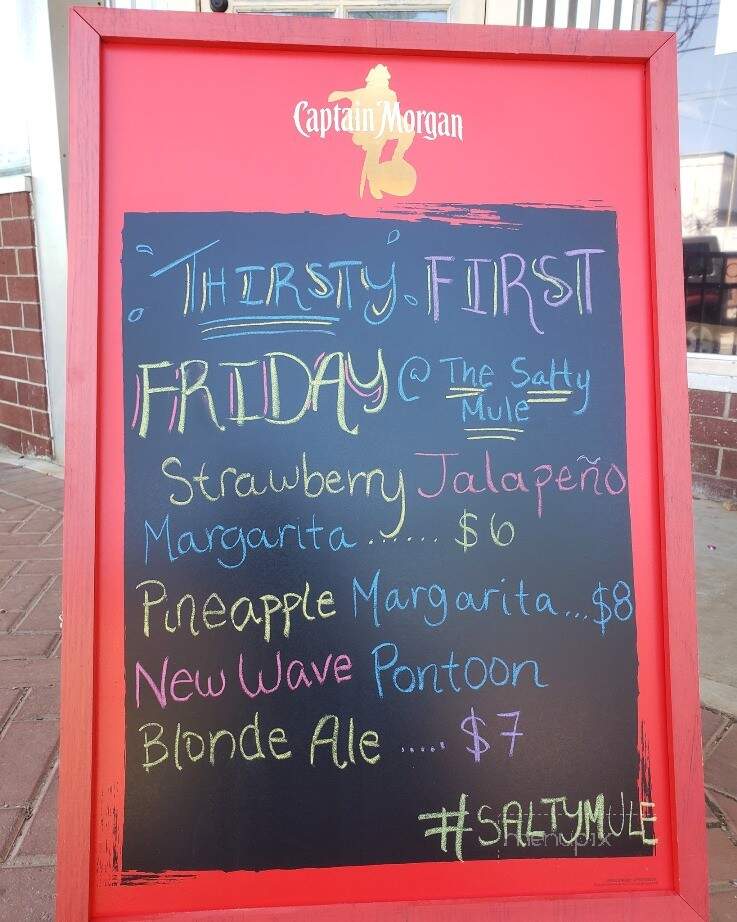 Captain Morgan
THIRSTY FIRST
FRIDAY @ The Salty
Mule
Strawberry Jalapeño
Margarita ....... $6
Pineapple Margarita...$8
New Wave Pontoon
Blonde Ale ..... $7
#SALTYMULE
menupix